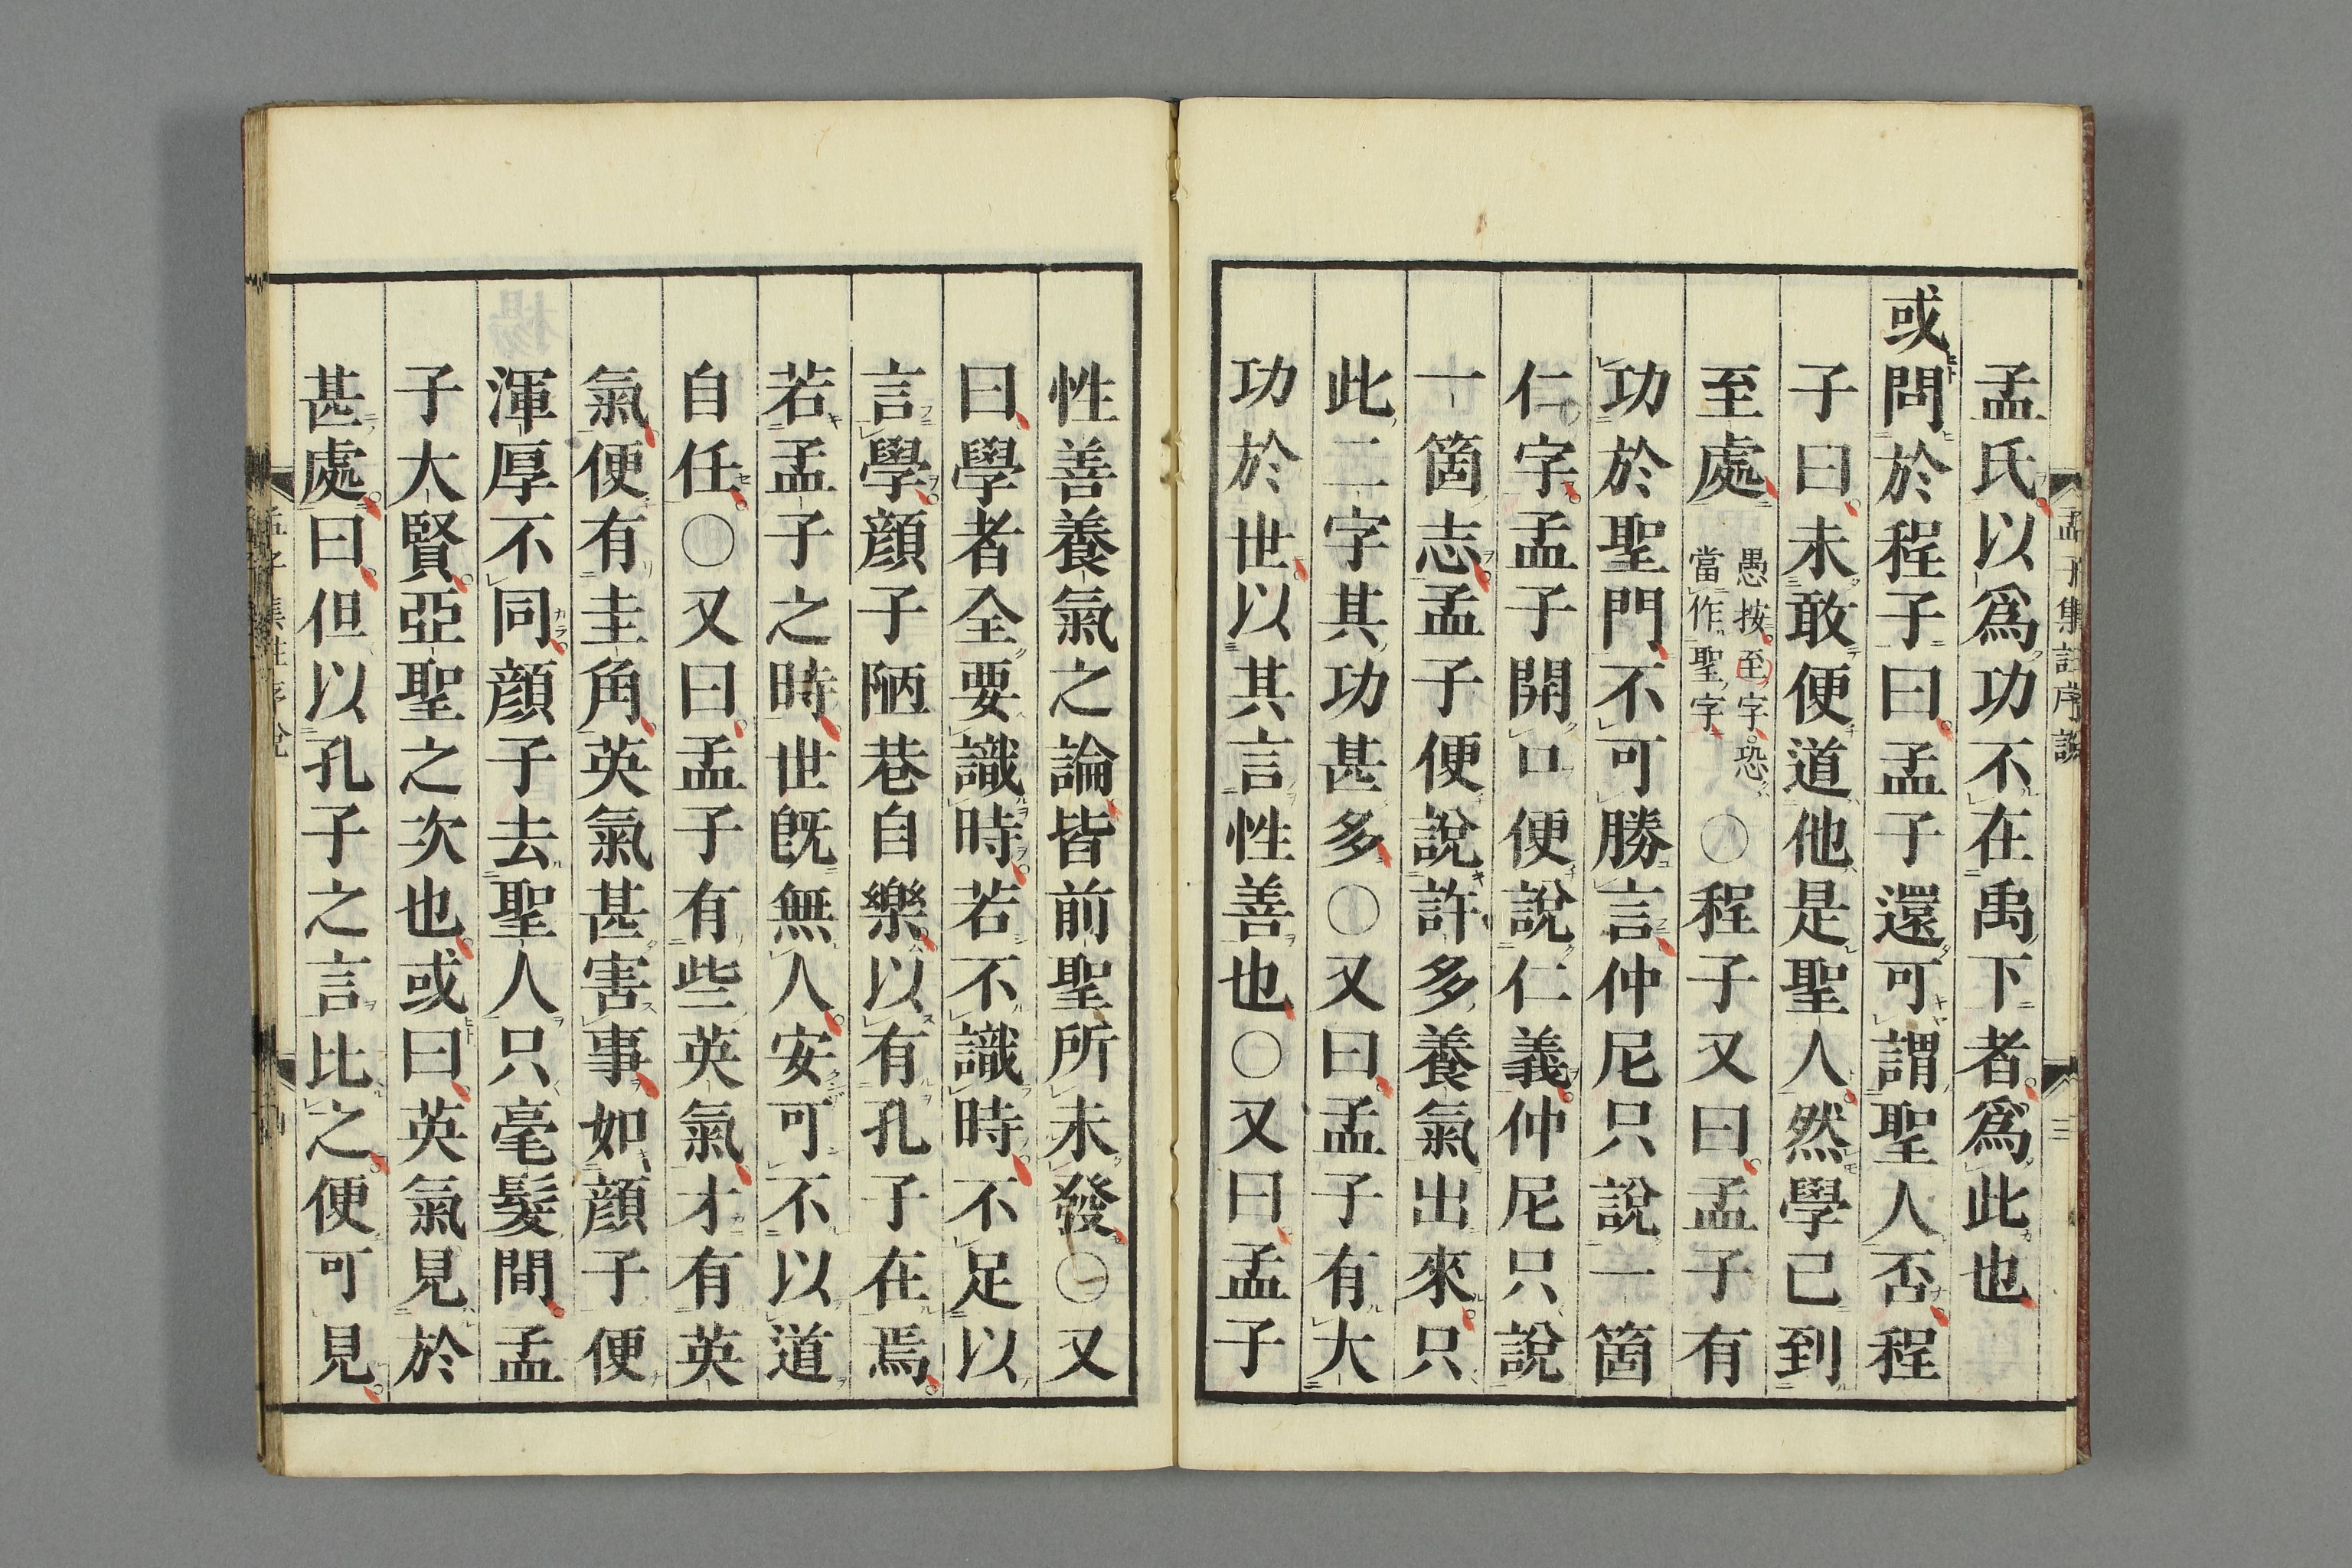 孟氏以爲功不在禹下者爲此也
或問於程子曰孟子還可謂聖人否程
子曰未敢便道他是聖人然學已到
至處愚按至字恐當作聖字○程子又曰孟子有
功於聖門不可勝言仲尼只說一箇
仁字孟子開口便說仁義仲尼只說
一箇志孟子便說許多養氣出來只
此二字其功甚多○又曰孟子有大
功於世以其言性善也○又曰孟子
性善養氣之論皆前聖所未發○又
曰學者全要識時若不識時不足以
言學顔子陋巷自樂以有孔子在焉
若孟子之時世旣無人安可不以道
自任○又曰孟子有些英氣才有英
氣便有圭角英氣甚害事如顔子便
渾厚不同顔子去聖人只毫髮間孟
子大賢亞聖之次也或曰英氣見於
甚處曰但以孔子之言比之便可見
孟子集註序說
三